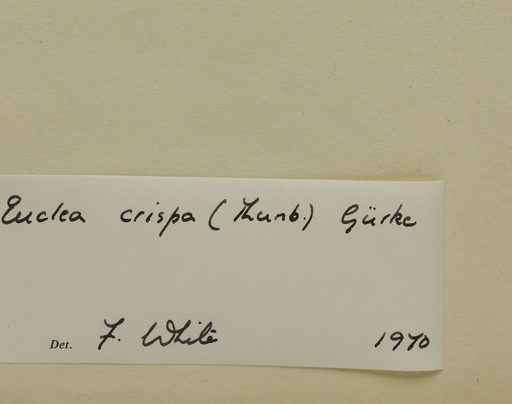 Euclea crispa (Thunb.) Gürke
Det. F. White 1970